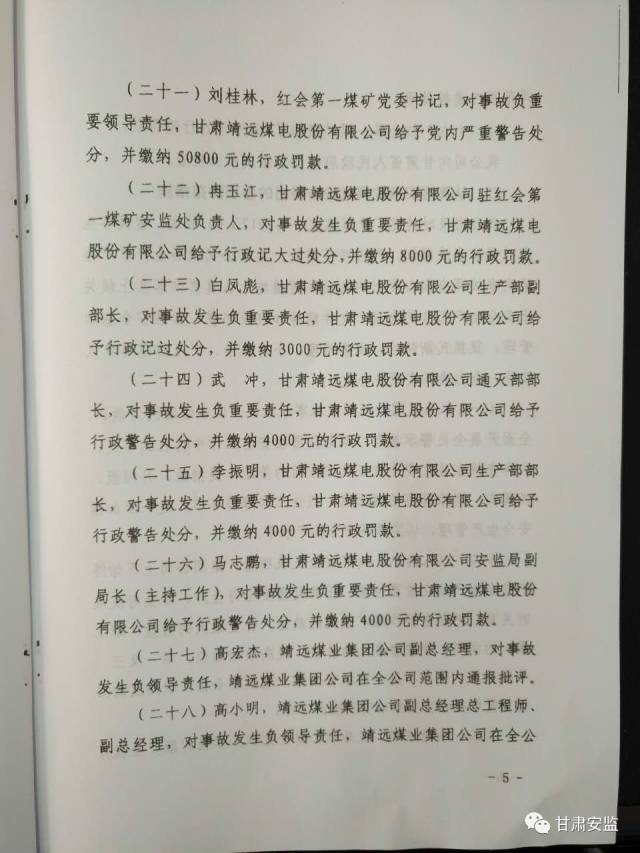 （二十一）刘桂林，红会第一煤矿党委书记，对事故负重
要领导责任，甘肃靖远煤电股份有限公司给予党内严重警告处
分，并缴纳50800元的行政罚款。
（二十二）冉玉江，甘肃靖远煤电股份有限公司驻红会第
一煤矿安监处负责人，对事故发生负重要责任，甘肃靖远煤电
股份有限公司给予行政记大过处分,并缴纳8000元的行政罚款。
（二十三）白凤彪，甘肃靖远煤电股份有限公司生产部副
部长，对事故发生负重要责任，甘肃靖远煤电股份有限公司给
予行政记过处分，并缴纳3000元的行政罚款。
（二十四）武　冲，甘肃靖远煤电股份有限公司通灭部部
长，对事故发生负重要责任，甘肃靖远煤电股份有限公司给予
行政警告处分，并缴纳4000元的行政罚款。
（二十五）李振明，甘肃靖远煤电股份有限公司生产部部
长，对事故发生负重要责任，甘肃靖远煤电股份有限公司给予
行政警告处分，并缴纳4000元的行政罚款。
（二十六）马志鹏，甘肃靖远煤电股份有限公司安监局副
局长（主持工作），对事故发生负重要责任，甘肃靖远煤电股份
有限公司给予行政警告处分，并缴纳4000元的行政罚款。
（二十七）高宏杰，靖远煤业集团公司副总经理，对事故
发生负领导责任，靖远煤业集团公司在全公司范围内通报批评。
（二十八）高小明，靖远煤业集团公司副总经理总工程师、
副总经理，对事故发生负领导责任，靖远煤业集团公司在全公
- 5 -
甘肃安监